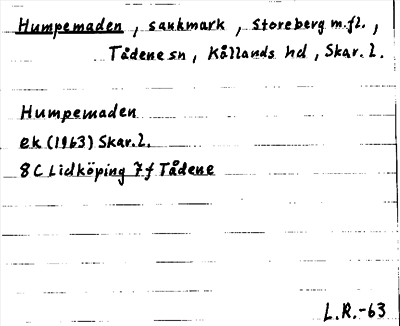 Humpemaden, sankmark, Storeberg m.fl.,
Tådene sn, Kållands hd, Skar. l.
Humpemaden
ek (1963) Skar. l.
8 C Lidköping 7 f Tådene
L.R.-63